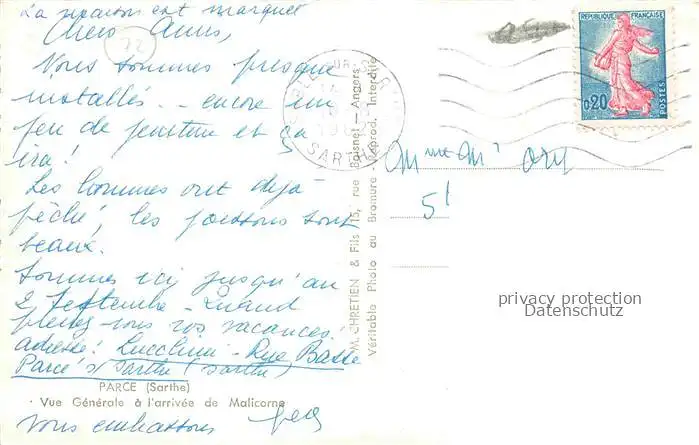 La maison est marquée
Chers Amis,
72
Nous sommes presque
installés - encore un
peu de peinture et ça
ira!
Les hommes ont déjà
pêché, les poissons sont
beaux.
Sommes ici jusqu'au
2 Septembre - Quand
prenez vous vos vacances!
adresse: Lucchini - Rue Basse
Parcé s/ Sarthe (Sarthe)
PARCE (Sarthe)
· Vue Générale à l'arrivée de Malicorne
Vous embrassons
M. CHRETIEN & Fils, 15, rue Boisnet - Angers
Véritable Photo au Bromure - Reprod. Interdite
SUR
SARTHE
REPUBLIQUE FRANÇAISE
0,20
POSTES
Mme M
5!
privacy protection
Datenschutz